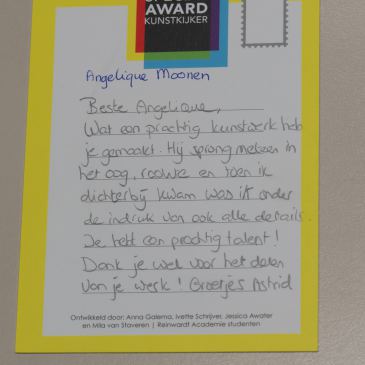 AWARD
KUNSTKIJKER
Angelique Moonen
Beste Angelique,
Wat een prachtig kunstwerk heb
je gemaakt. Hij sprong meteen in
het oog, en toen ik
dichterbij kwam was ik onder
de indruk van ook alle details.
Je hebt een prachtig talent!
Dank je wel voor het delen
van je werk! Groetjes Astrid
Ontwikkeld door: Anna Galema, Ivette Schrijver, Jessica Awater
en Mila van Staveren | Reinwardt Academie studenten